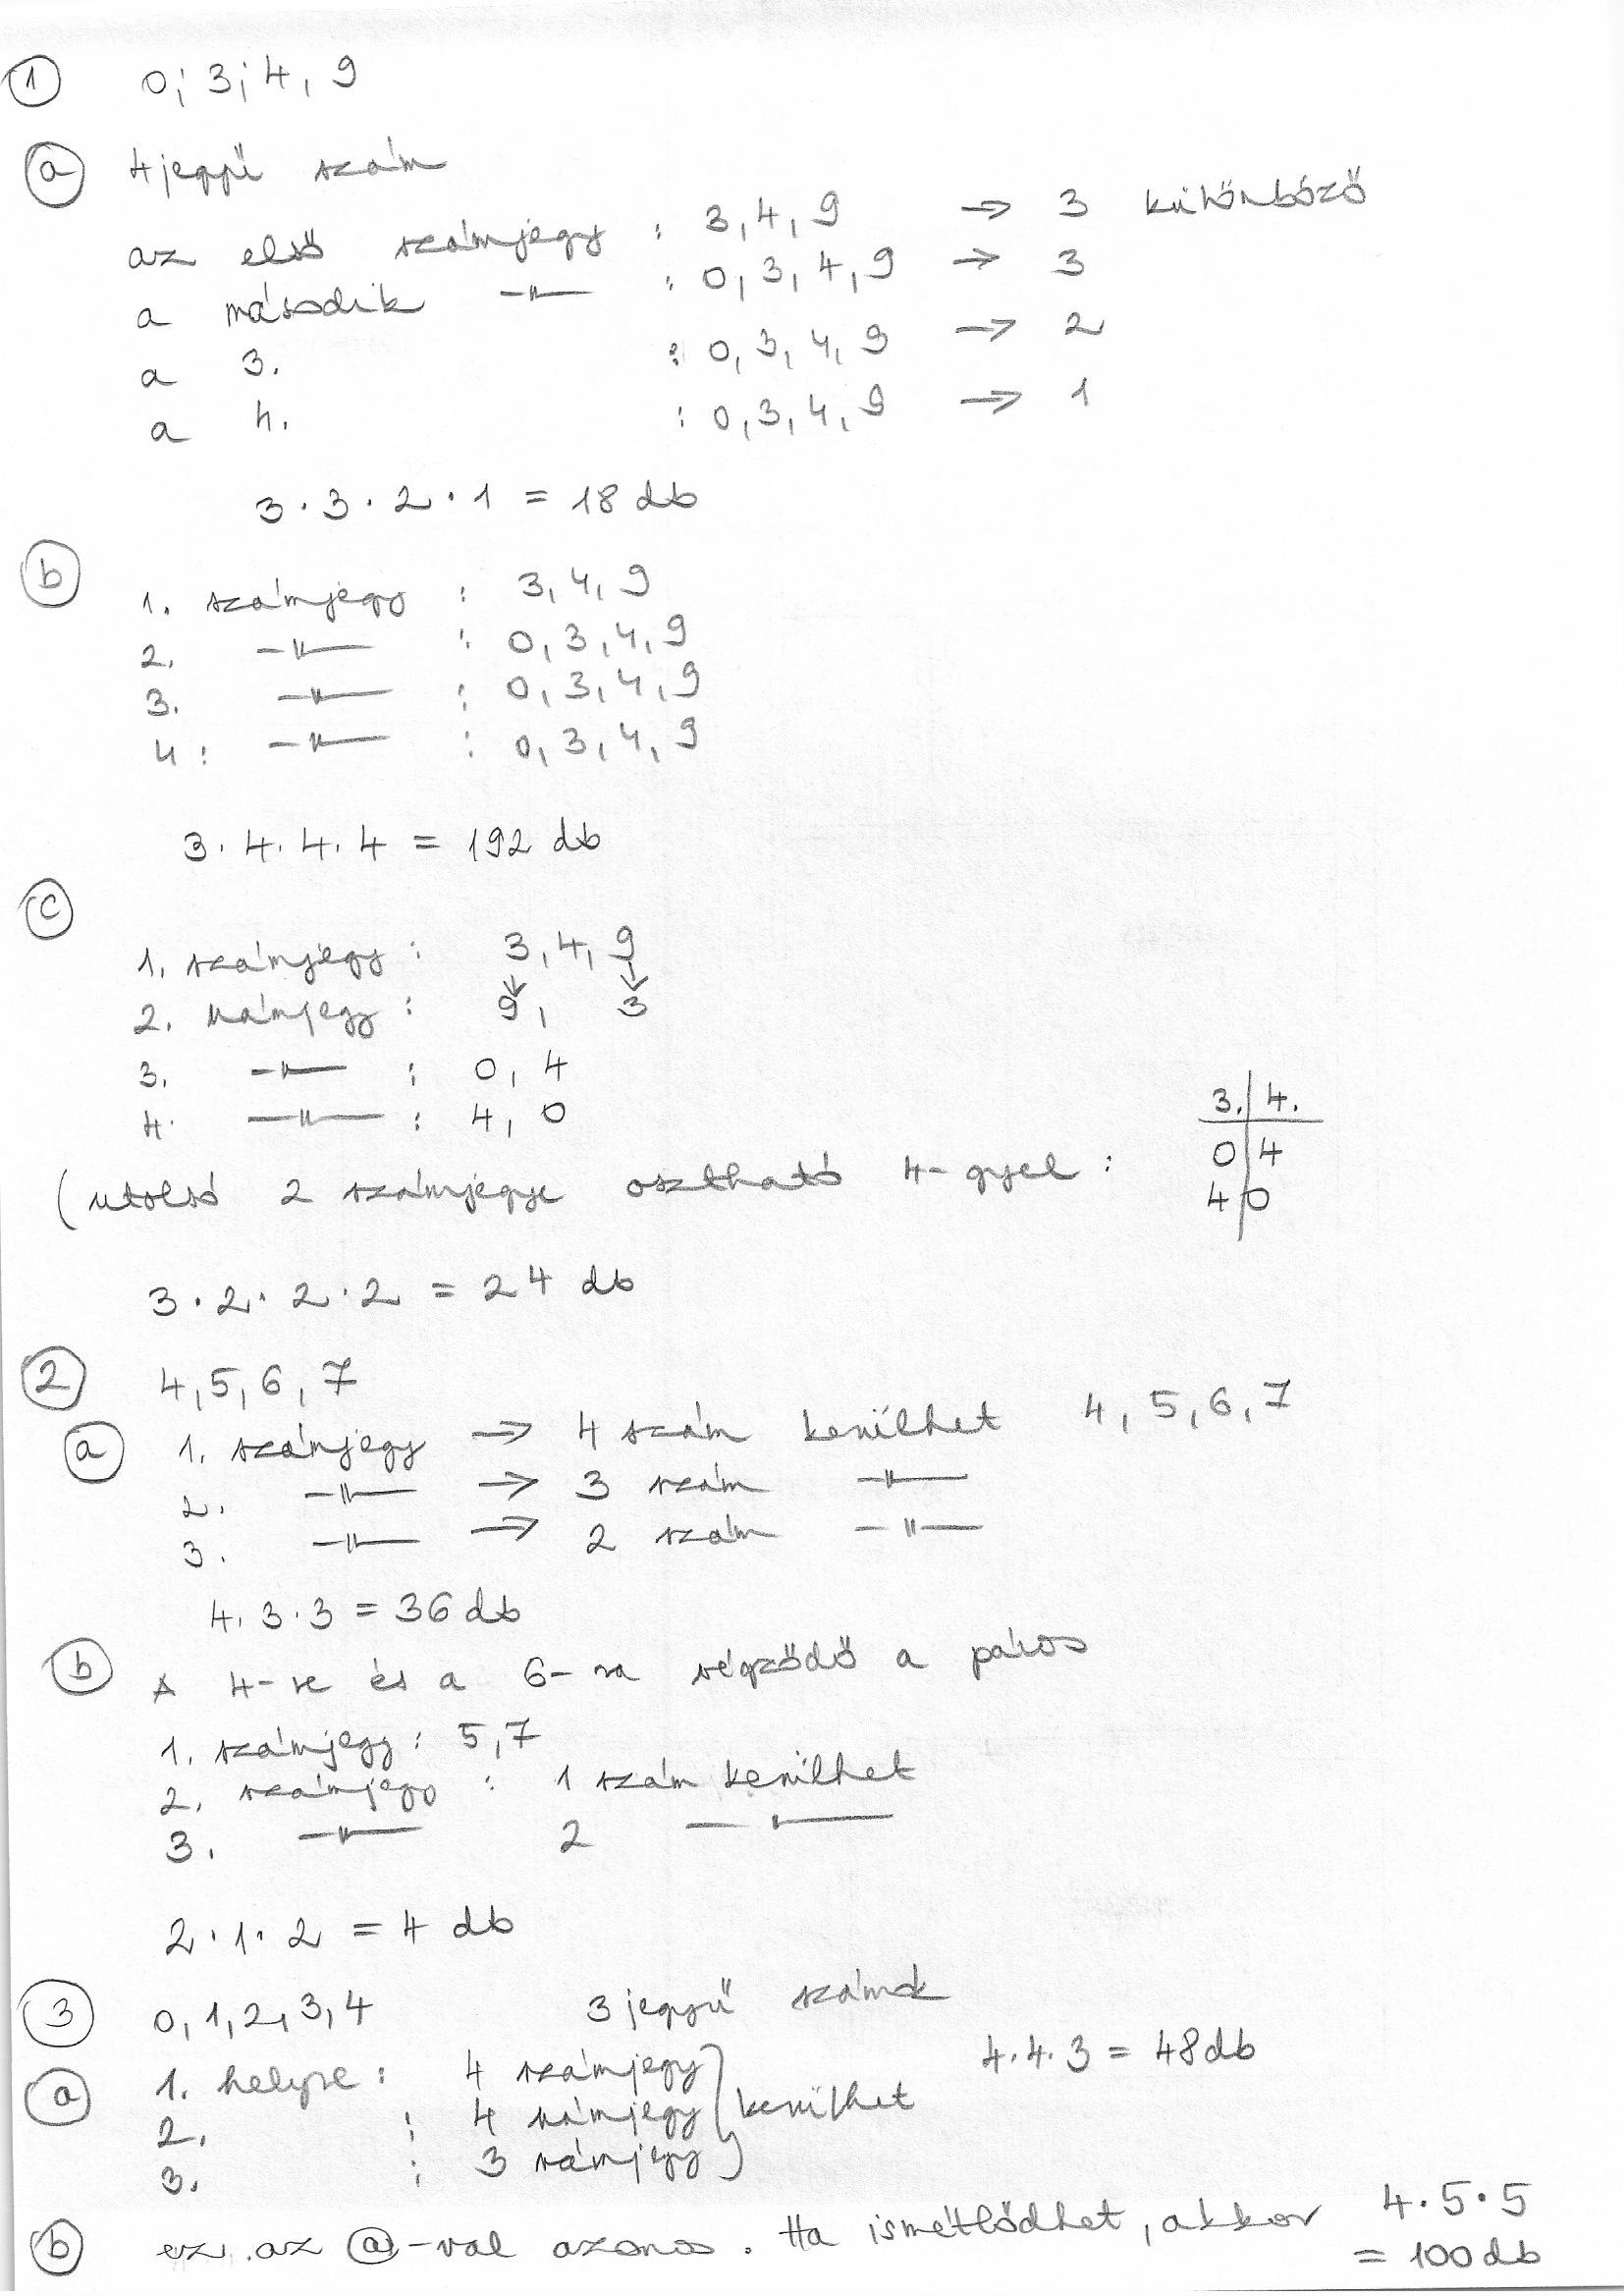 ① 0; 3; 4, 9
ⓐ 4jegyű szám
az első számjegy : 3, 4, 9 → 3 különböző
a második —"— : 0, 3, 4, 9 → 3
a 3. : 0, 3, 4, 9 → 2
a 4. : 0, 3, 4, 9 → 1
3 · 3 · 2 · 1 = 18 db
ⓑ
1. számjegy : 3, 4, 9
2. —"— : 0, 3, 4, 9
3. —"— : 0, 3, 4, 9
4: —"— : 0, 3, 4, 9
3 · 4 · 4 · 4 = 192 db
ⓒ
1. számjegy : 3, 4, 9
↓ ↓
2. számjegy : 9, 3
3. —"— : 0, 4
4. —"— : 4, 0
3. | 4.
0 | 4
4 | 0
(utolsó 2 számjegye osztható 4-gyel :
3 · 2 · 2 · 2 = 24 db
② 4, 5, 6, 7
ⓐ 1. számjegy → 4 szám kerülhet 4, 5, 6, 7
2. —"— → 3 szám —"—
3. —"— → 2 szám —"—
4 · 3 · 3 = 36 db
ⓑ A 4-re és a 6-ra végződő a páros
1. számjegy : 5, 7
2. számjegy : 1 szám kerülhet
3. —"— 2 —"—
2 · 1 · 2 = 4 db
③ 0, 1, 2, 3, 4 3 jegyű számok
ⓐ 1. helyre : 4 számjegy } kerülhet 4 · 4 · 3 = 48 db
2. : 4 számjegy
3. : 3 számjegy
ⓑ ez az ⓐ-val azonos. Ha ismétlődhet, akkor 4 · 5 · 5
= 100 db